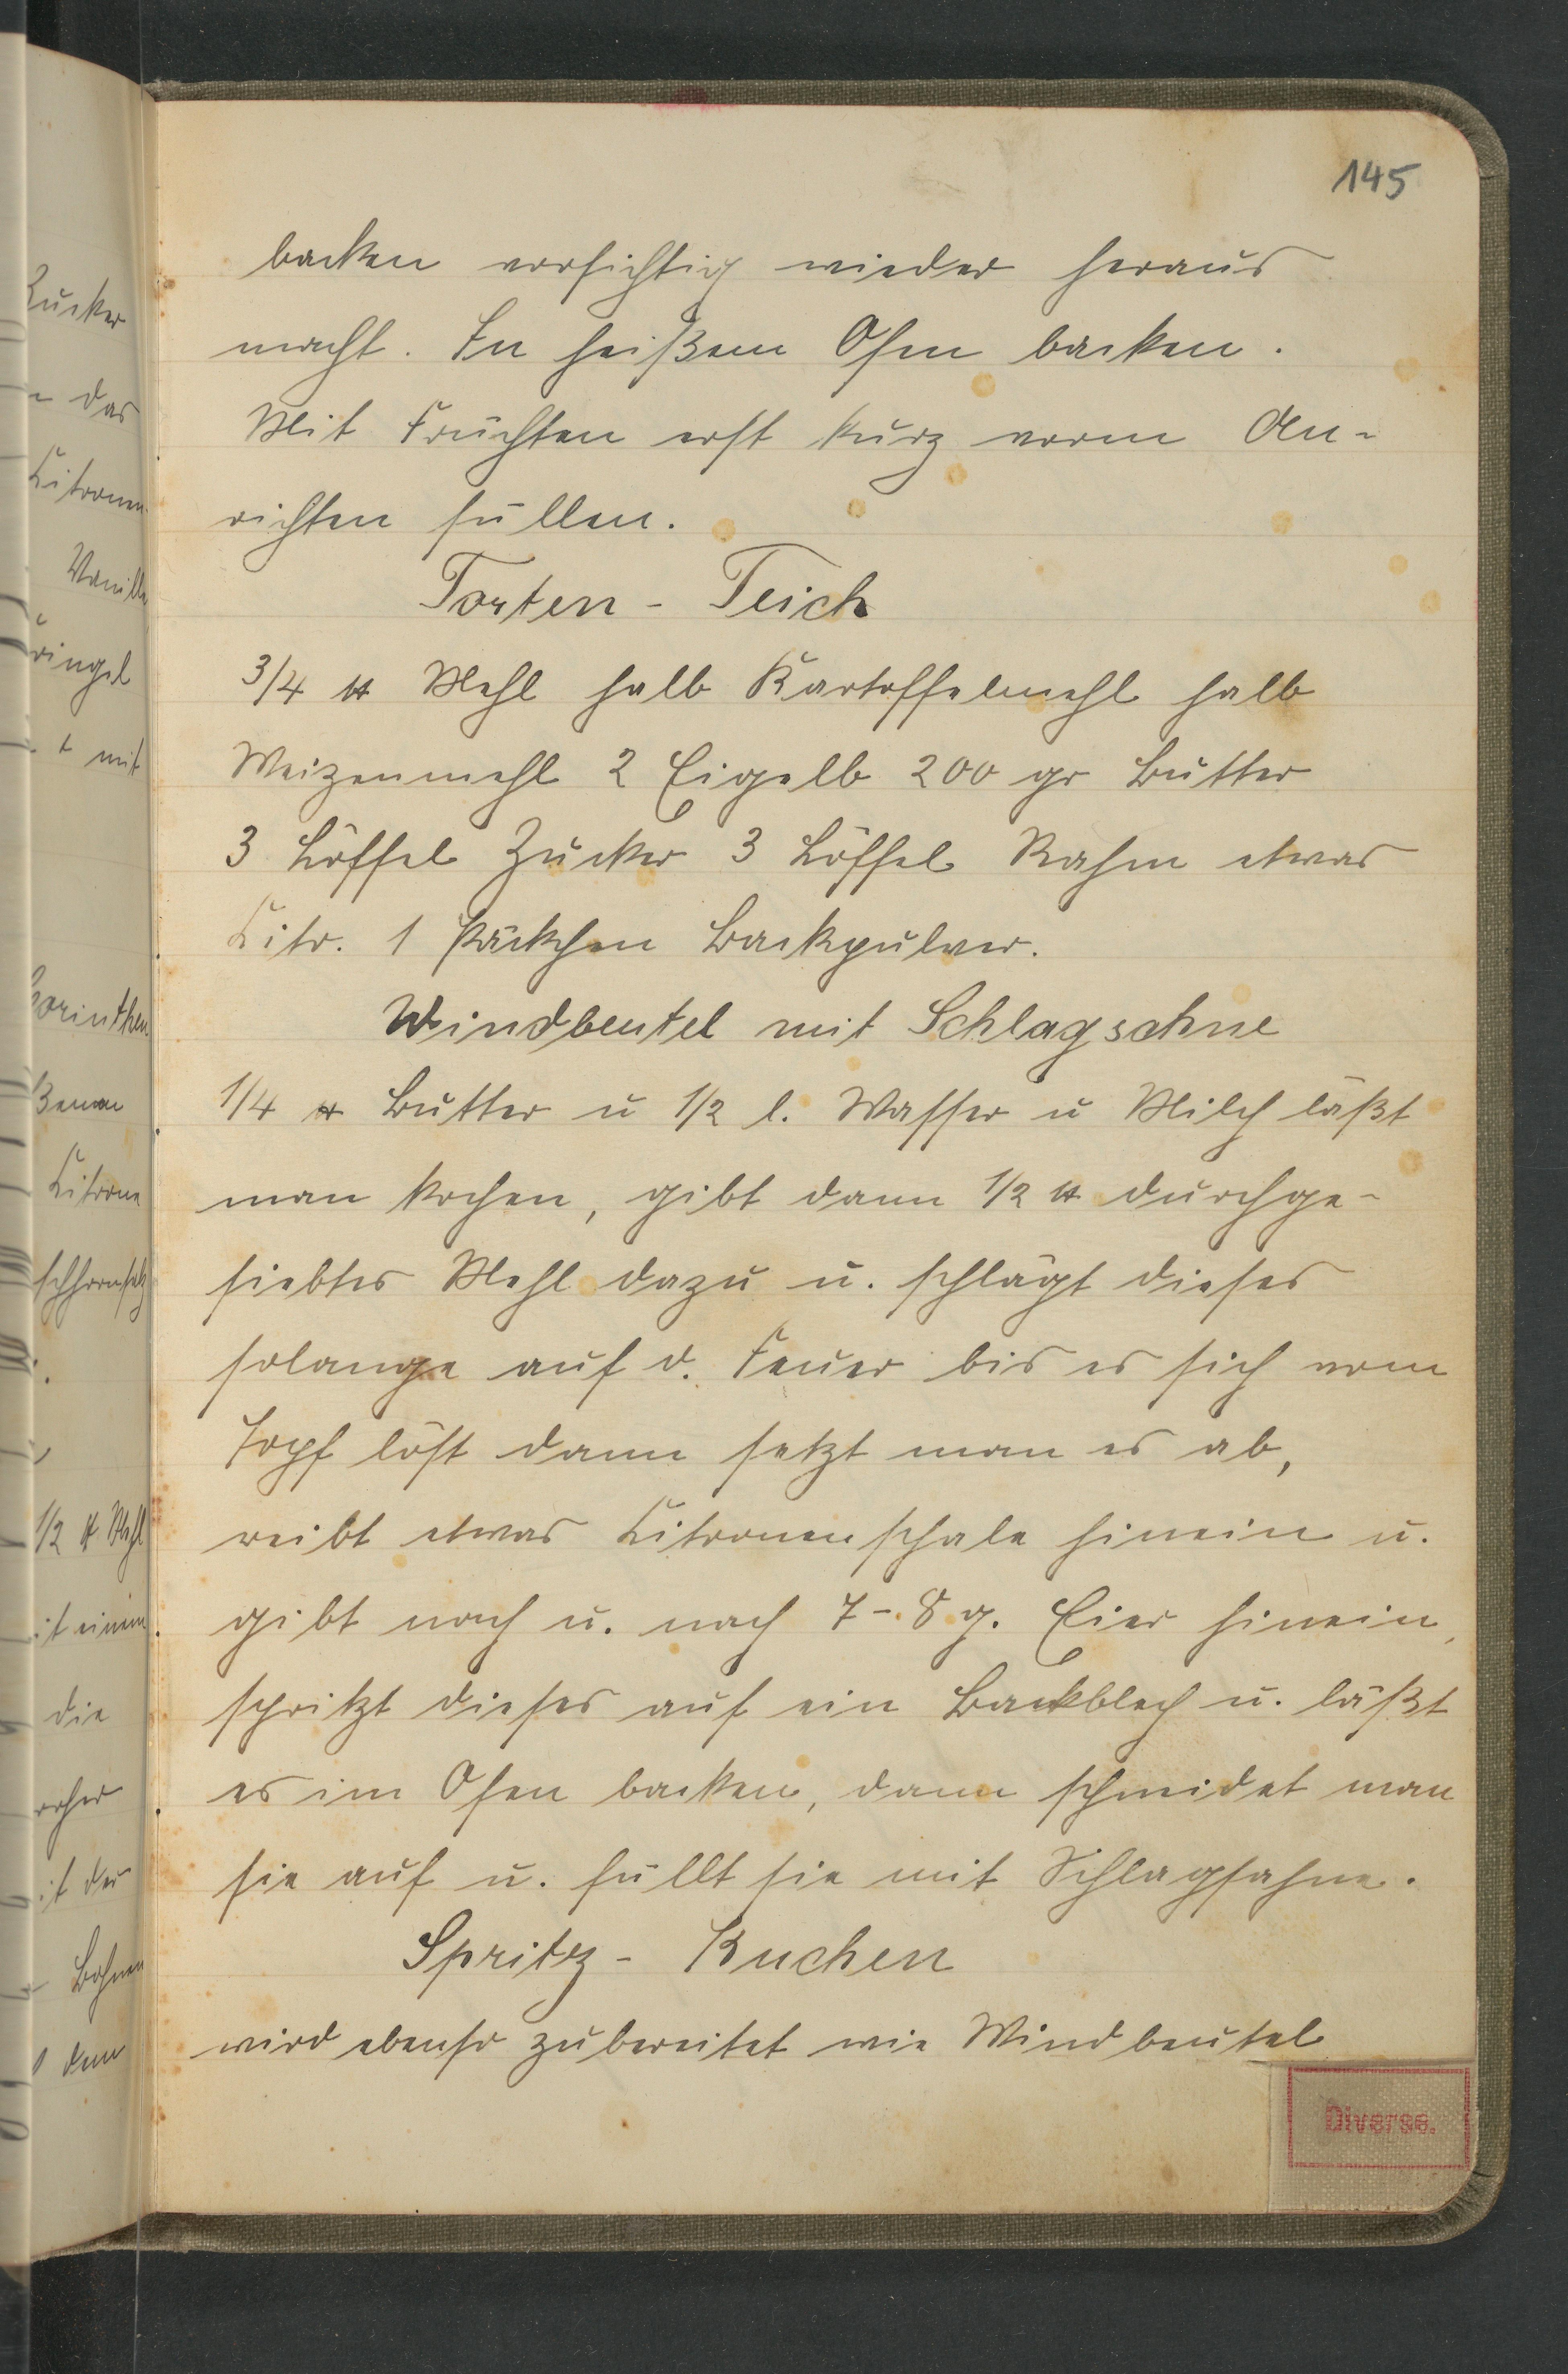 145
backen vorsichtig wieder heraus
macht. In heißem Ofen backen.
Mit Früchten erst kurz vorm An-
richten füllen.
Torten - Teich
3/4 ℔ Mehl halb Kartoffelmehl halb
Weizenmehl 2 Eigelb 200 gr Butter
3 Löffel Zucker 3 Löffel Rahm etwas
Citr. 1 Päckchen Backpulver.
Windbeutel mit Schlagsahne
1/4 ℔ Butter u 1/2 l. Wasser u Milch läßt
man kochen, gibt dann 1/2 ℔ durchge-
siebtes Mehl dazu u. schlägt dieses
solange auf d. Feuer bis es sich vom
Topf löst dann setzt man es ab,
reibt etwas Citronenschale hinein u.
gibt nach u. nach 7-8 g. Eier hinein,
spritzt dieses auf ein Backblech u. läßt
es im Ofen backen, dann schneidet man
sie auf u. füllt sie mit Schlagsahne.
Spritz - Kuchen
wird ebenso zubereitet wie Windbeutel
Diverse.
Zucker
das
Citronen
Vanille
mit
Corinthen
Citrone
1/2 ℔ Mehl
die
Bohnen